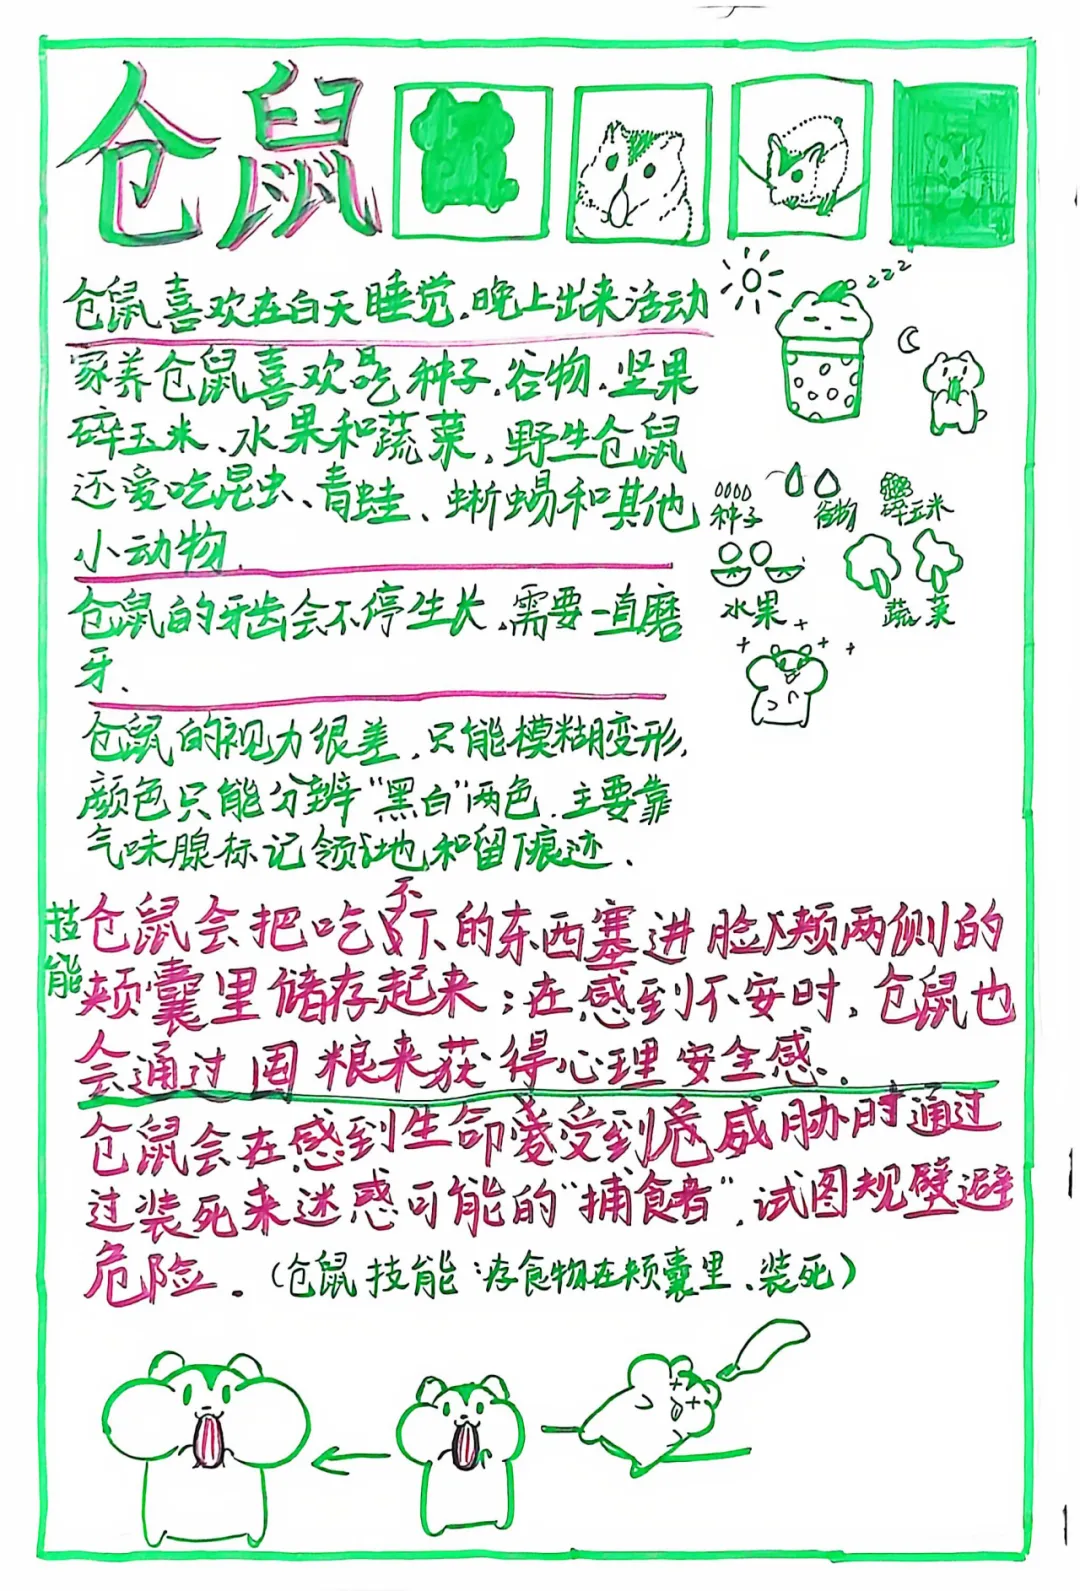 仓鼠
仓鼠喜欢在白天睡觉,晚上出来活动
zzz
家养仓鼠喜欢吃种子、谷物、坚果
碎玉米、水果和蔬菜,野生仓鼠
还爱吃昆虫、青蛙、蜥蜴和其他
小动物.
种子 谷物 碎玉米
水果 蔬菜
仓鼠的牙齿会不停生长,需要一直磨
牙.
仓鼠的视力很差,只能模糊变形,
颜色只能分辨“黑白”两色.主要靠
气味腺标记领地和留下痕迹.
技能
仓鼠会把吃不下的东西塞进脸颊两侧的
颊囊里储存起来;在感到不安时,仓鼠也
会通过囤粮来获得心理安全感.
仓鼠会在感到生命受到威胁时通过
过装死来迷惑可能的“捕食者”,试图规避
危险.(仓鼠技能:存食物在颊囊里、装死)